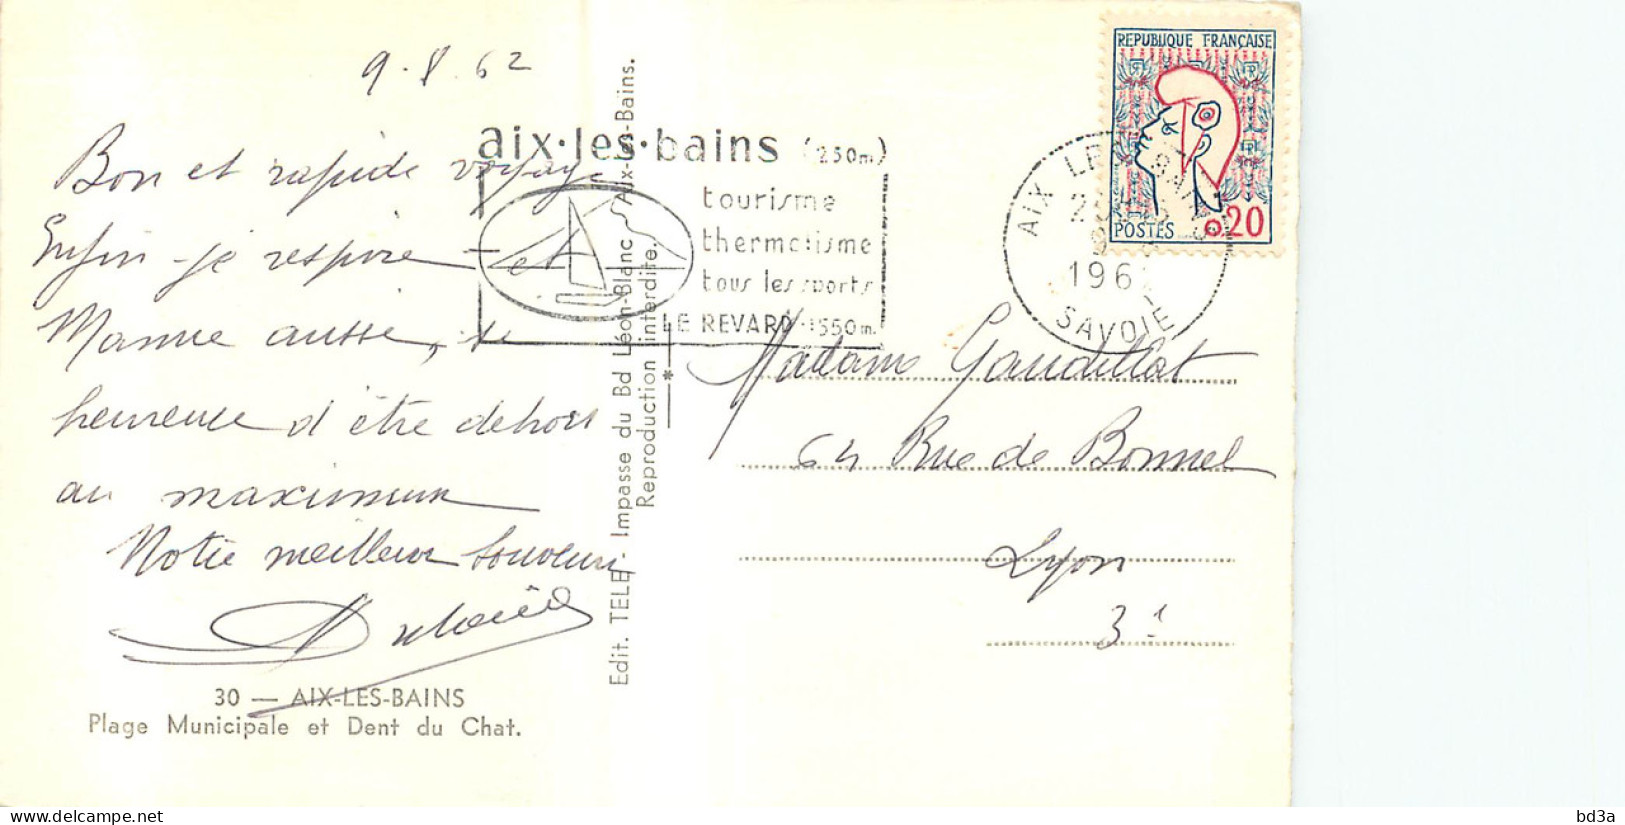 9.8.62
Bon et rapide voyage
Enfin je respire et
Mamie aussi, si
heureuse d'être dehors
au maximum
Notre meilleur souvenir
30 — AIX-LES-BAINS
Plage Municipale et Dent du Chat.
Edit. TELE - Impasse du Bd Léon-Blanc Aix-les-Bains.
Reproduction interdite.
aix·les·bains (250m)
tourisme
thermalisme
tous les sports
LE REVARD 1550m.
REPUBLIQUE FRANÇAISE
POSTES 0,20
AIX LES BAINS
1962
SAVOIE
Madame Gaudillat
64 Rue de Bonnel
Lyon
3e
bd3a